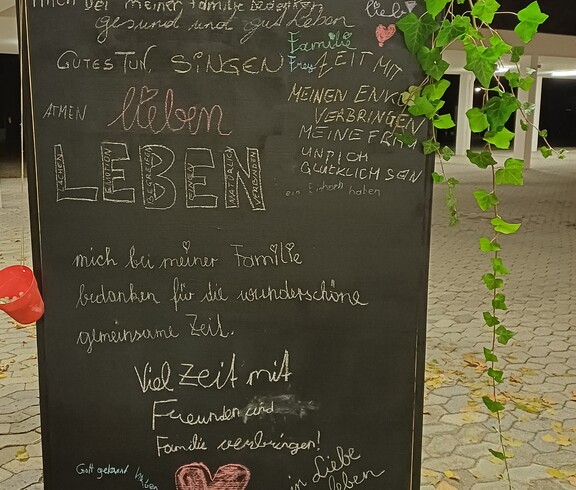 mich bei meiner Familie bedanken
gesund und gut Leben
liebe
GUTES TUN, SINGEN
Familie
ZEIT MIT
MEINEN ENKELN
VERBRINGEN
MEINE FRAU
UND ICH
GLÜCKLICH SEIN
ein Einhorn haben
ATMEN
lieben
LEBEN
LACHEN
EMOTION
BEGREIFEN
EINFACH
NATÜRLICH
VERBUNDEN
mich bei meiner Familie
bedanken für die wunderschöne
gemeinsame Zeit.
Viel Zeit mit
Freunden und
Familie verbringen!
Gott gekannt haben
in Liebe
leben